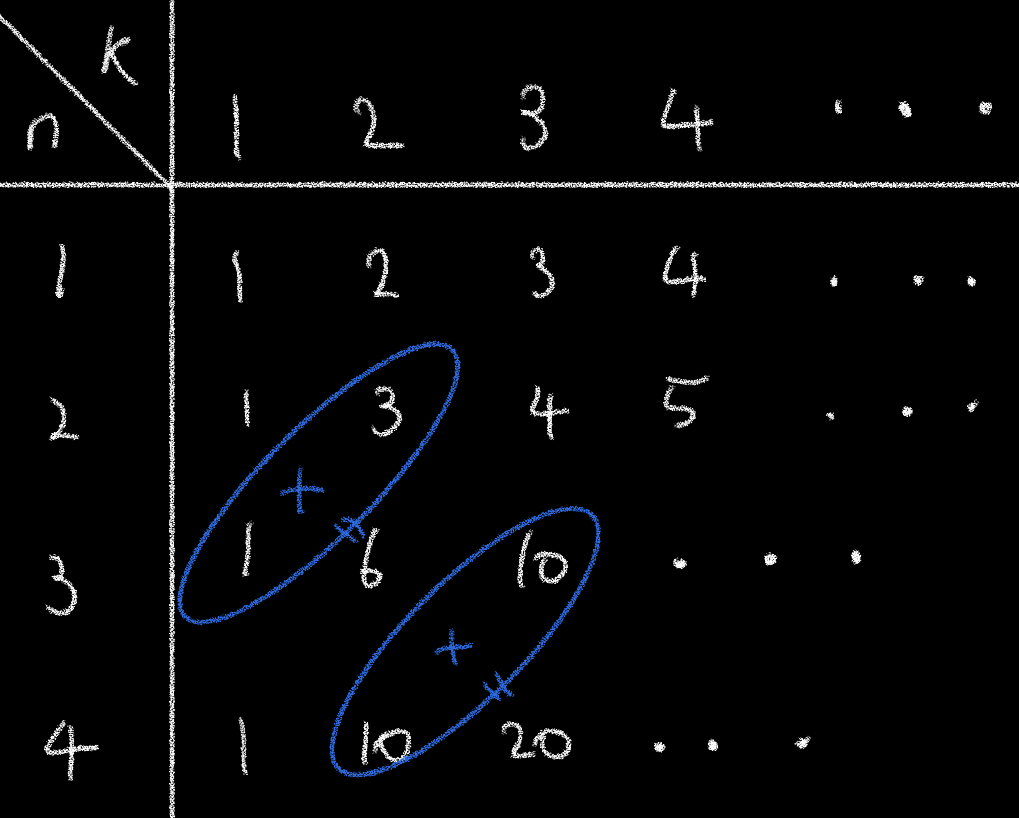 K
n 1 2 3 4 . . .
1 1 2 3 4 . . .
2 1 3 4 5 . . .
+
3 1 6 10 . . .
+
4 1 10 20 . . .